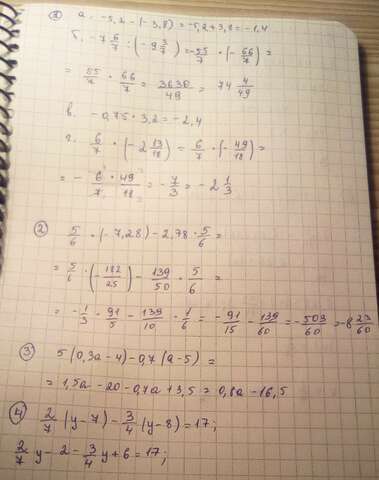 ① а. -5,2 - (-3,8) = -5,2 + 3,8 = -1,4
б. -7 6/7 · (-9 3/7) = -55/7 · (-66/7) =
= 55/7 · 66/7 = 3630/49 = 74 4/49
в. -0,75 · 3,2 = -2,4
г. 6/7 · (-2 13/18) = 6/7 · (-49/18) =
= - 6/7 · 49/18 = -7/3 = -2 1/3
② 5/6 · (-7,28) - 2,78 · 5/6 =
= 5/6 · (-182/25) - 139/50 · 5/6 =
= -1/3 · 91/5 - 139/10 · 1/6 = -91/15 - 139/60 = -503/60 = -8 23/60
③ 5(0,3a - 4) - 0,7(a - 5) =
= 1,5a - 20 - 0,7a + 3,5 = 0,8a - 16,5
④ 2/7 (y - 7) - 3/4 (y - 8) = 17;
2/7 y - 2 - 3/4 y + 6 = 17;